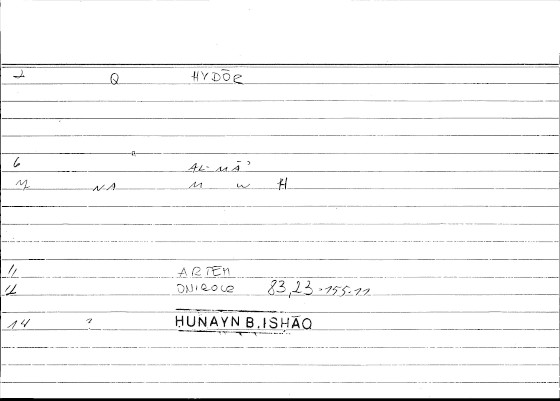 2 Q HYDŌR
6 AL-MĀʾ
M NA M W H
11 ARTEM
12 ONIROCR 83,23-155-11
14 HUNAYN B.ISHĀQ